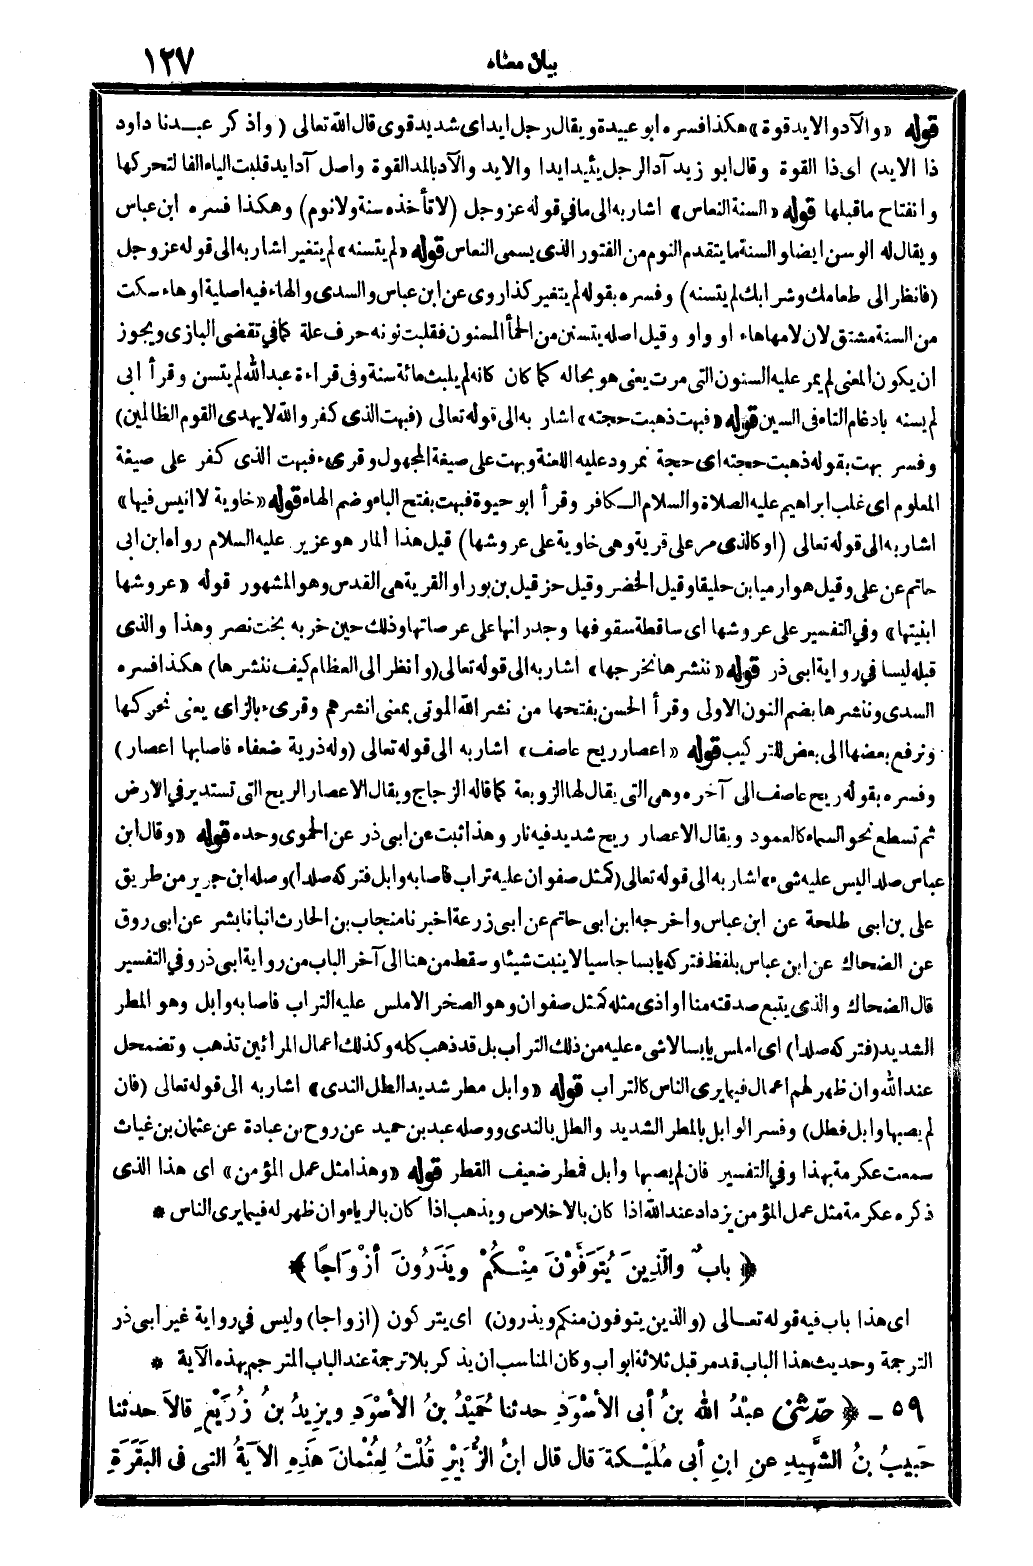 بيان معناه ١٢٧
قوله «والآد والايد قوة» هكذا فسره ابو عبيدة ويقال رجل ايد اى شديد قوى قال الله تعالى ( واذكر عبـدنا داود
ذا الايد) اى ذا القوة وقال ابو زيد آد الرجل يئيد ايدا والايد والآد بالمد القوة واصل آد ايد قلبت الياء الفا لتحركها
وانفتاح ماقبلها قوله «السنة النعاس» اشار به الى مافي قوله عز وجل (لا تأخذه سنة ولا نوم) وهكذا فسره ابن عباس
ويقال له الوسن ايضا والسنة ما يتقدم النوم من الفتور الذى يسمى النعاس قوله «لم يتسنه» لم يتغير اشار به الى قوله عز وجل
(فانظر الى طعامك وشرابك لم يتسنه) وفسره بقوله لم يتغير كذا روى عن ابن عباس والسدى والهاء فيه اصلية او هاء سكت
من السنة مشتق لان لامها هاء او واو وقيل اصله يتسنن من الحمأ المسنون فقلبت نونه حرف علة كما في تقضى البازى ويجوز
ان يكون المعنى لم يمر عليه السنون التى مرت يعنى هو بحاله كما كان كانه لم يلبث مائة سنة وفى قراءة عبد الله لم يتسن وقرأ ابى
لم يسنه بادغام التاء فى السين قوله «فبهت ذهبت حجته» اشار به الى قوله تعالى (فبهت الذى كفر والله لا يهدى القوم الظالمين)
وفسر بهت بقوله ذهبت حجته اى حجة نمرود عليه اللعنة وبهت على صيغة المجهول وقرىء فبهت الذى كفر على صيغة
المعلوم اى غلب ابراهيم عليه الصلاة والسلام الـكافر وقرأ ابو حيوة فبهت بفتح الباء وضم الهاء قوله «خاوية لا انيس فيها»
اشار به الى قوله تعالى (او كالذى مر على قرية وهى خاوية على عروشها) قيل هذا المار هو عزير عليه السلام رواه ابن ابى
حاتم عن على وقيل هو ارميا بن حليقا وقيل الخضر وقيل حزقيل بن بورا والقرية هى القدس وهو المشهور قوله «عروشها
ابنيتها» وفي التفسير على عروشها اى ساقطة سقوفها وجدرانها على عرصاتها وذلك حين خربه بخت نصر وهذا والذى
قبله ليسا في رواية ابى ذر قوله «ننشرها نخرجها» اشار به الى قوله تعالى (وانظر الى العظام كيف ننشرها) هكذا فسره
السدى وننشرها بضم النون الاولى وقرأ الحسن بفتحها من نشر الله الموتى بمعنى انشرهم وقرىء بالزاى يعنى نحركها
ونرفع بعضها الى بعض للتركيب قوله «اعصار ريح عاصف» اشار به الى قوله تعالى (وله ذرية ضعفاء فاصابها اعصار)
وفسره بقوله ريح عاصف الى آخره وهى التى يقال لها الزوبعة كما قاله الزجاج ويقال الاعصار الريح التى تستدير في الارض
ثم تسطع نحو السماء كالعمود ويقال الاعصار ريح شديد فيه نار وهذا ثبت عن ابى ذر عن الحموى وحده قوله «وقال ابن
عباس صلدا ليس عليه شىء» اشار به الى قوله تعالى (كمثل صفوان عليه تراب فاصابه وابل فتركه صلدا) وصله ابن جرير من طريق
على بن ابى طلحة عن ابن عباس واخرجه ابن ابى حاتم عن ابى زرعة اخبرنا منجاب بن الحارث انبأنا بشر عن ابى روق
عن الضحاك عن ابن عباس بلفظ فتركه يابسا جاسيا لا ينبت شيئا وسقط من هنا الى آخر الباب من رواية ابى ذر وفي التفسير
قال الضحاك والذى يتبع صدقته منا أو اذى مثله كمثل صفوان وهو الصخر الاملس عليه التراب فاصابه وابل وهو المطر
الشديد (فتركه صلدا) اى املس يابسا لاشىء عليه من ذلك التراب بل قد ذهب كله وكذلك أعمال المرائين تذهب وتضمحل
عند الله وان ظهر لهم اعمال فيما يرى الناس كالتراب قوله «وابل مطر شديد الطل الندى» اشار به الى قوله تعالى (فان
لم يصبها وابل فطل) وفسر الوابل بالمطر الشديد والطل بالندى ووصله عبد بن حميد عن روح بن عبادة عن عثمان بن غياث
سمعت عكرمة بهذا وفي التفسير فان لم يصبها وابل فمطر ضعيف القطر قوله «وهذا مثل عمل المؤمن» اى هذا الذى
ذكره عكرمة مثل عمل المؤمن يزداد عند الله اذا كان بالاخلاص ويذهب اذا كان بالرياء وان ظهر له فيما يرى الناس *
﴿ بابٌ والَّذِينَ يُتَوَفَّوْنَ مِنْـكُمْ ويَذَرُونَ أزْوَاجًا ﴾
اى هذا باب فيه قوله تعـالى (والذين يتوفون منكم ويذرون) اى يتركون (ازواجا) وليس في رواية غير ابى ذر
الترجمة وحديث هذا الباب قد مر قبل ثلاثة ابواب وكان المناسب أن يذكر بلا ترجمة عند الباب المترجم بهذه الآية *
٥٩ ـ ﴿ حدّثني عبْدُ الله بنُ أبى الأسْوَدِ حدثنا حُمَيْدُ بنُ الأسْوَدِ ويزِيدُ بنُ زُرَيْعٍ قالاَ حدثنا
حَبيبُ بنُ الشَّهِيدِ عنِ ابنِ أبى مُلَيْـكةَ قال قال ابنُ الزُّبَيْرِ قُلْتُ لِعُثْمانَ هَذِهِ الآيةُ التى فى البَقَرَةِ